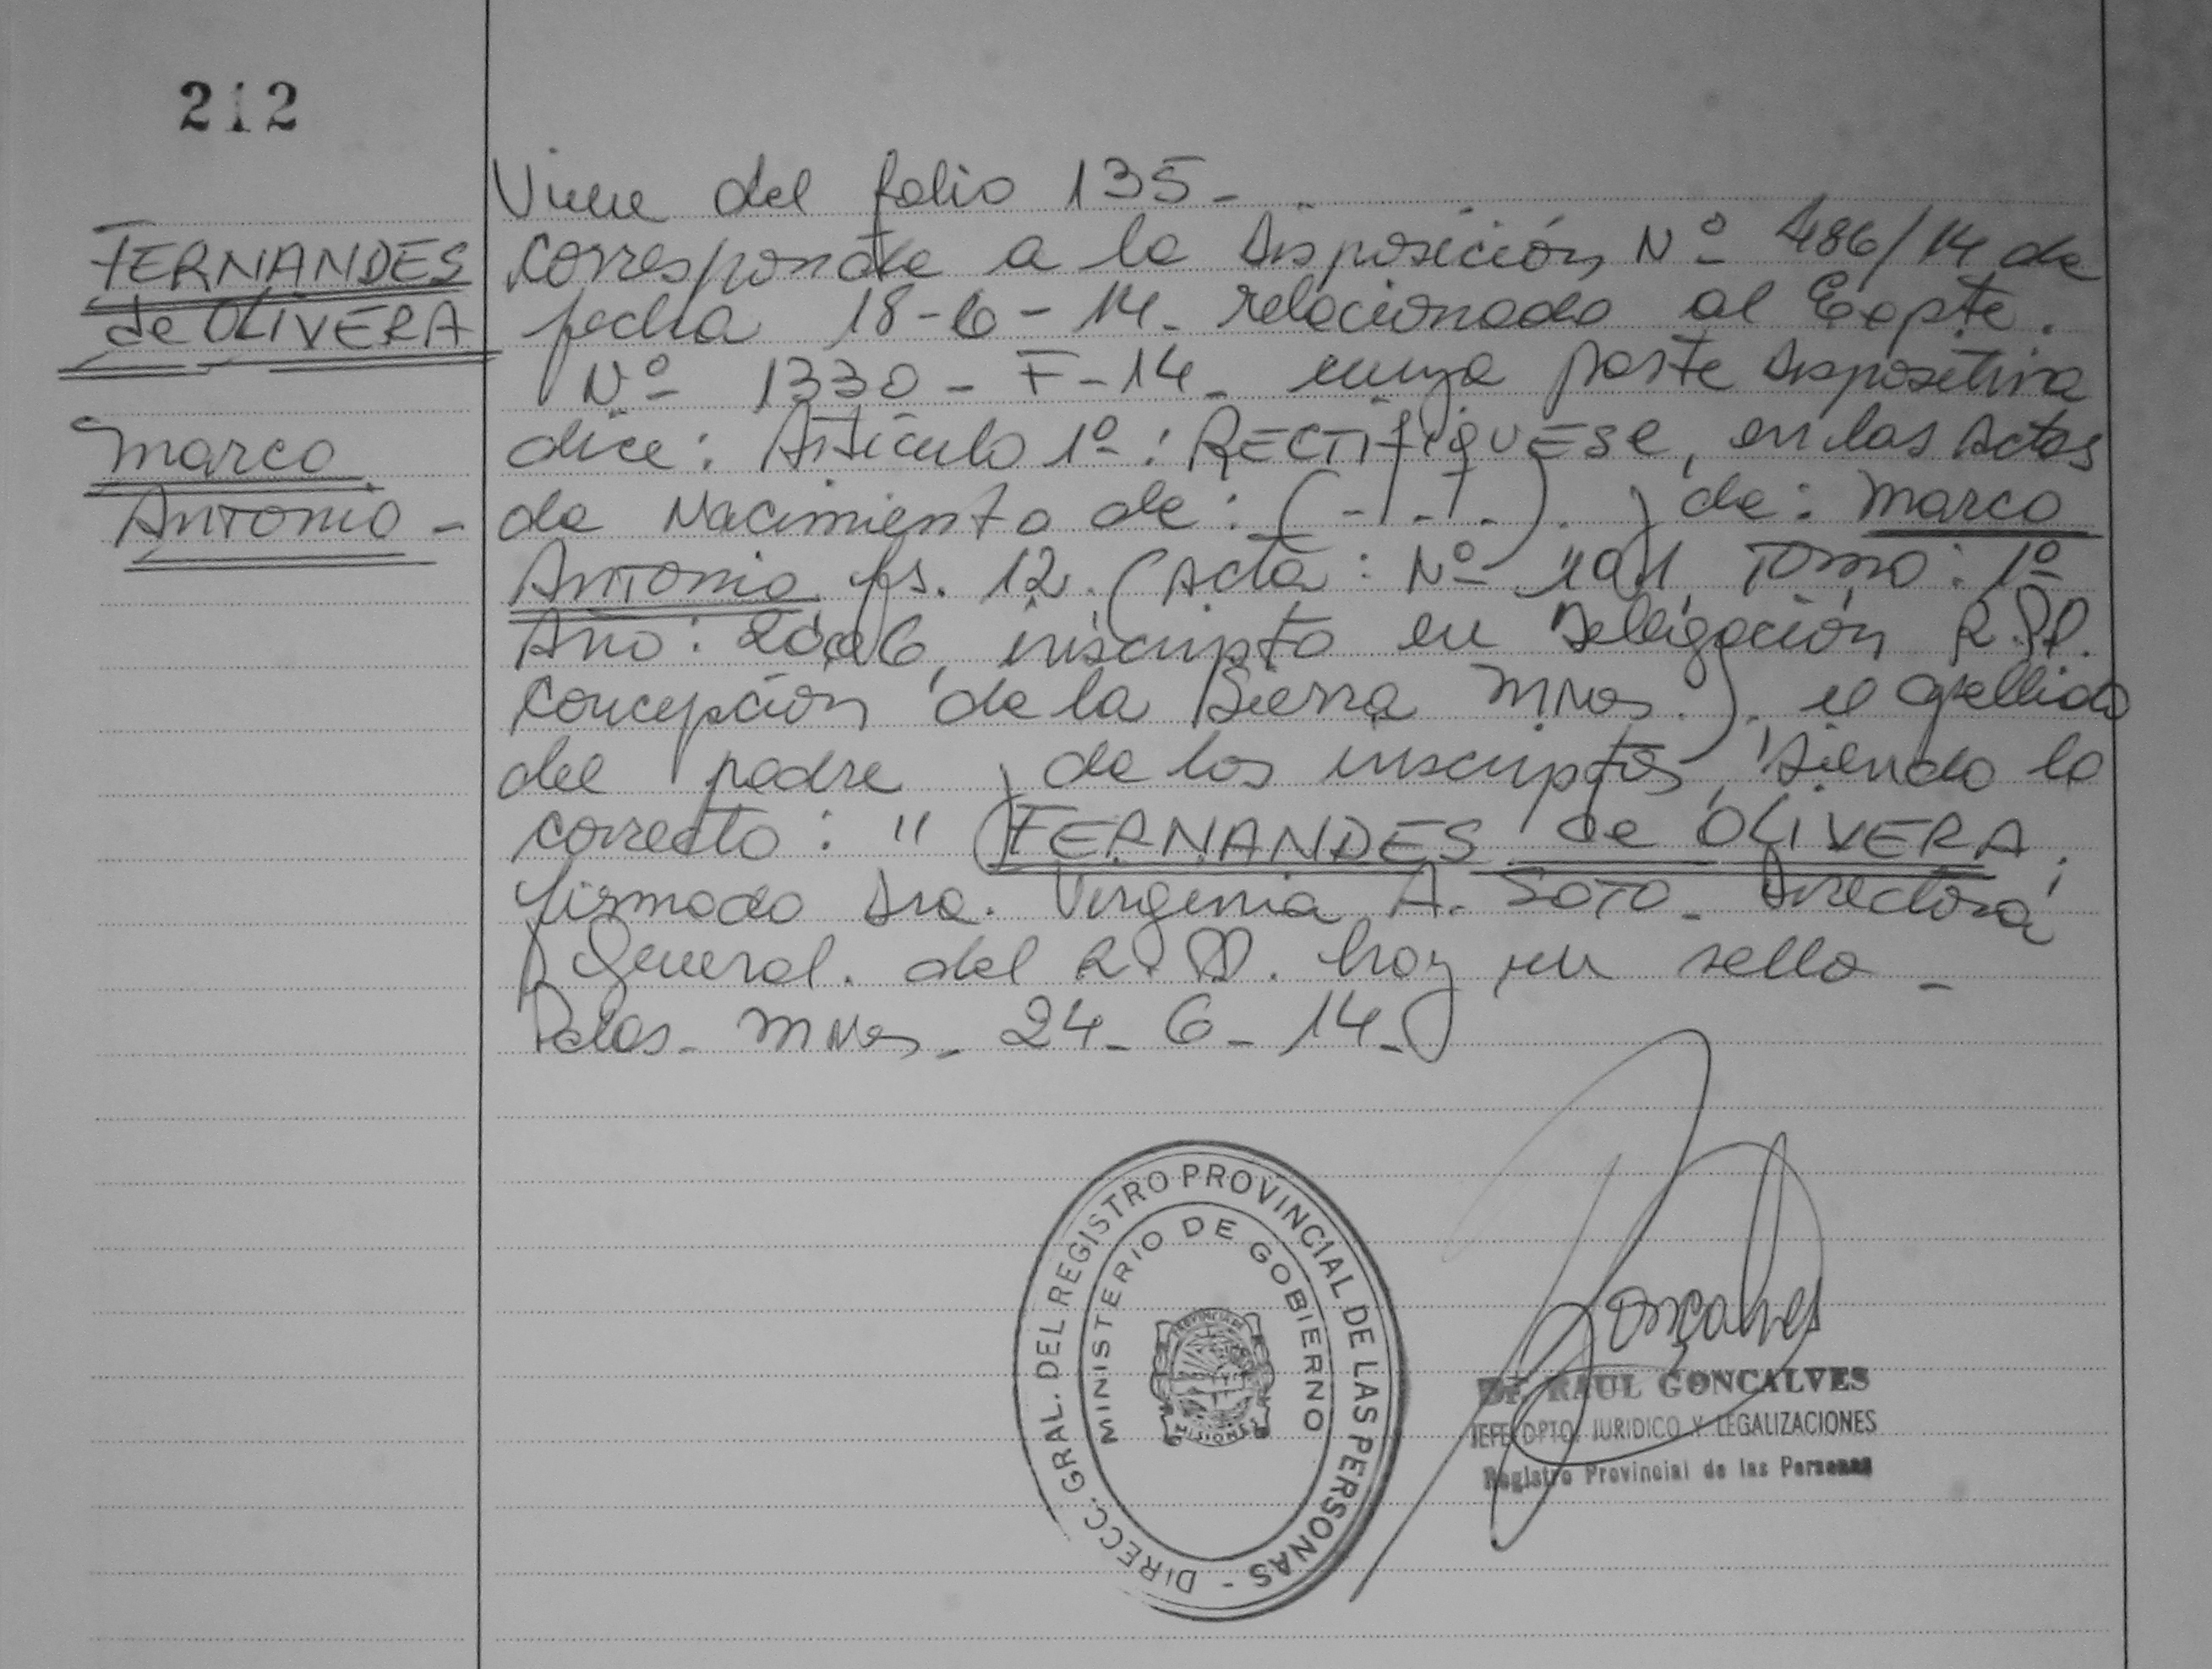 212
Viene del folio 135-
FERNANDES
de OLIVERA
Marco
Antonio -
corresponde a la Disposición Nº 486/14 de
fecha 18-6-14. relacionado al Expte.
Nº 1330-F-14. cuya parte dispositiva
dice: Artículo 1º: RECTIFIQUESE, en las Actas
de Nacimiento de: (-.-.-.). de: Marco
Antonio fs. 12. (Acta: Nº Tomo: 1º
Año: 2006, inscripto en Delegación R.P.P.
Concepción de la Sierra Mnes.). el apellido
del padre de los inscriptos, siendo lo
correcto: " FERNANDES de OLIVERA.
firmado Dra. Virginia A. SOTO. Directora
General. del R.P.P. hay un sello -
Pdas. Mnes. 24-6-14.
DIRECC. GRAL. DEL REGISTRO PROVINCIAL DE LAS PERSONAS -
MINISTERIO DE GOBIERNO
PROVINCIA DE
MISIONES
Gonçalves
Dr. RAUL GONCALVES
JEFE DPTO. JURIDICO Y LEGALIZACIONES
Registro Provincial de las Personas